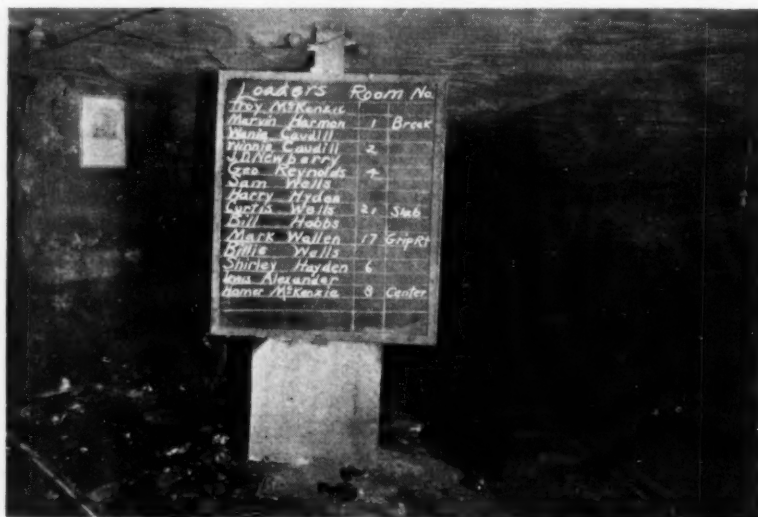 Loaders Room No.
Troy McKenzie
Marvin Harmon 1 Break
Wania Caudill
Winnie Caudill 2
J.D. Newberry
Geo Reynolds 4
Sam Wells
Harry Hyden
Curtis Wells 21 Slab
Bill Hobbs
Mark Wallen 17 Grip Rt
Billie Wells
Shirley Hayden 6
Alexander
Homer McKenzie 8 Center